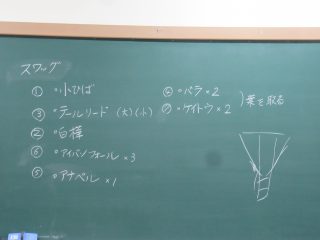 スワッグ
① ○小ひば
③ ○テールリード (大)(小)
② ○白樺
⑥ ○アイバンフォール ×3
⑤ ○アナベル ×1
④ ○バラ ×2
⑦ ○ケイトウ ×2
)葉を取る